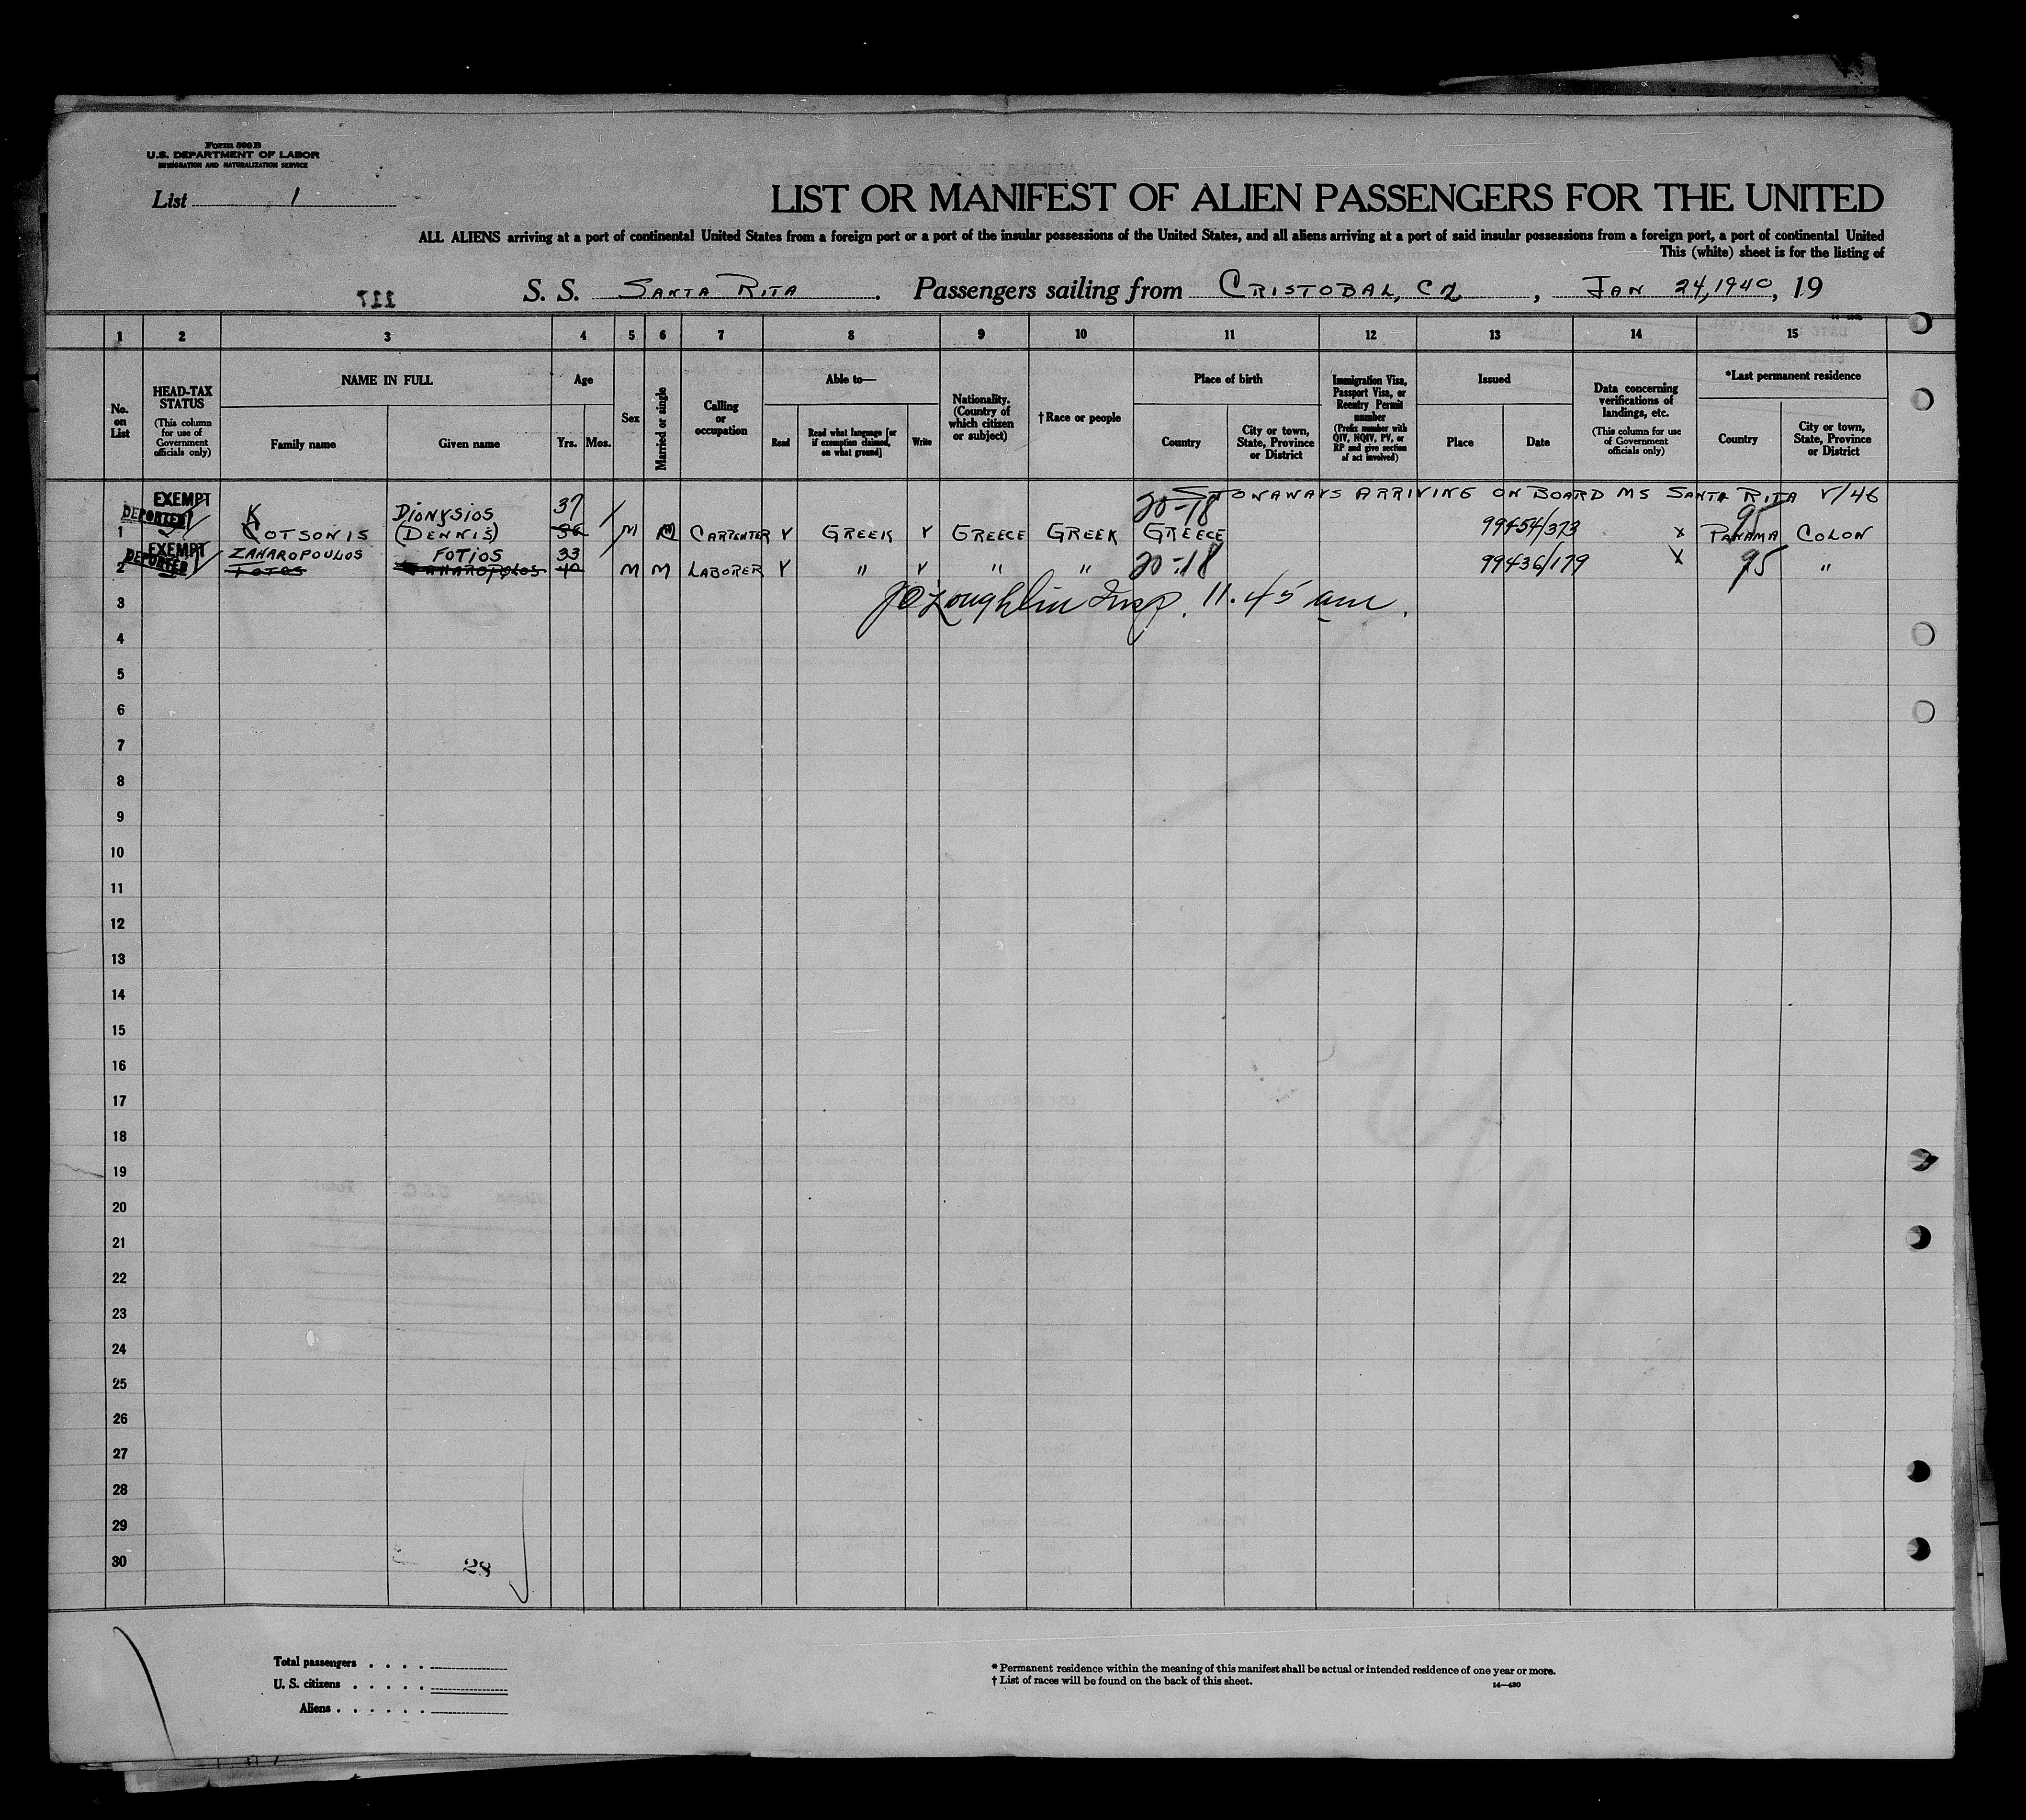 Form 500 B
U.S. DEPARTMENT OF LABOR
IMMIGRATION AND NATURALIZATION SERVICE
List 1
LIST OR MANIFEST OF ALIEN PASSENGERS FOR THE UNITED
ALL ALIENS arriving at a port of continental United States from a foreign port or a port of the insular possessions of the United States, and all aliens arriving at a port of said insular possessions from a foreign port, a port of continental United
This (white) sheet is for the listing of
117
S. S. SANTA RITA. Passengers sailing from CRISTOBAL, CZ, JAN 24, 1940, 19
1 2 3 4 5 6 7 8 9 10 11 12 13 14 15
No. on List
HEAD-TAX STATUS (This column for use of Government officials only)
NAME IN FULL
Family name
Given name
Age
Yrs. Mos.
Sex
Married or single
Calling or occupation
Able to—
Read
Read what language [or if exemption claimed, on what ground]
Write
Nationality. (Country of which citizen or subject)
†Race or people
Place of birth
Country
City or town, State, Province or District
Immigration Visa, Passport Visa, or Reentry Permit number
(Prefix number with QIV, NQIV, PV, or RP and give section of act involved)
Issued
Place
Date
Data concerning verifications of landings, etc.
(This column for use of Government officials only)
*Last permanent residence
Country
City or town, State, Province or District
STOWAWAYS ARRIVING ON BOARD MS SANTA RITA V/46
EXEMPT
DEPORTED
K DIONYSIOS 37 20-18 95
1 COTSONIS (DENNIS) 36 M M CARPENTER V GREEK V GREECE GREEK GREECE 99454/373 x PANAMA COLON
EXEMPT
DEPORTED
ZAHAROPOULOS FOTIOS 33
2 FOTOS ZAHAROPOLOS 40 M M LABORER V " V " " 20-18 99436/179 x 95 "
3 JO'Loughlin Insp. 11.45 am.
4
5
6
7
8
9
10
11
12
13
14
15
16
17
18
19
20
21
22
23
24
25
26
27
28
29
30
28
Total passengers . . . .
U. S. citizens . . . . .
Aliens . . . . . .
* Permanent residence within the meaning of this manifest shall be actual or intended residence of one year or more.
† List of races will be found on the back of this sheet.
14—430